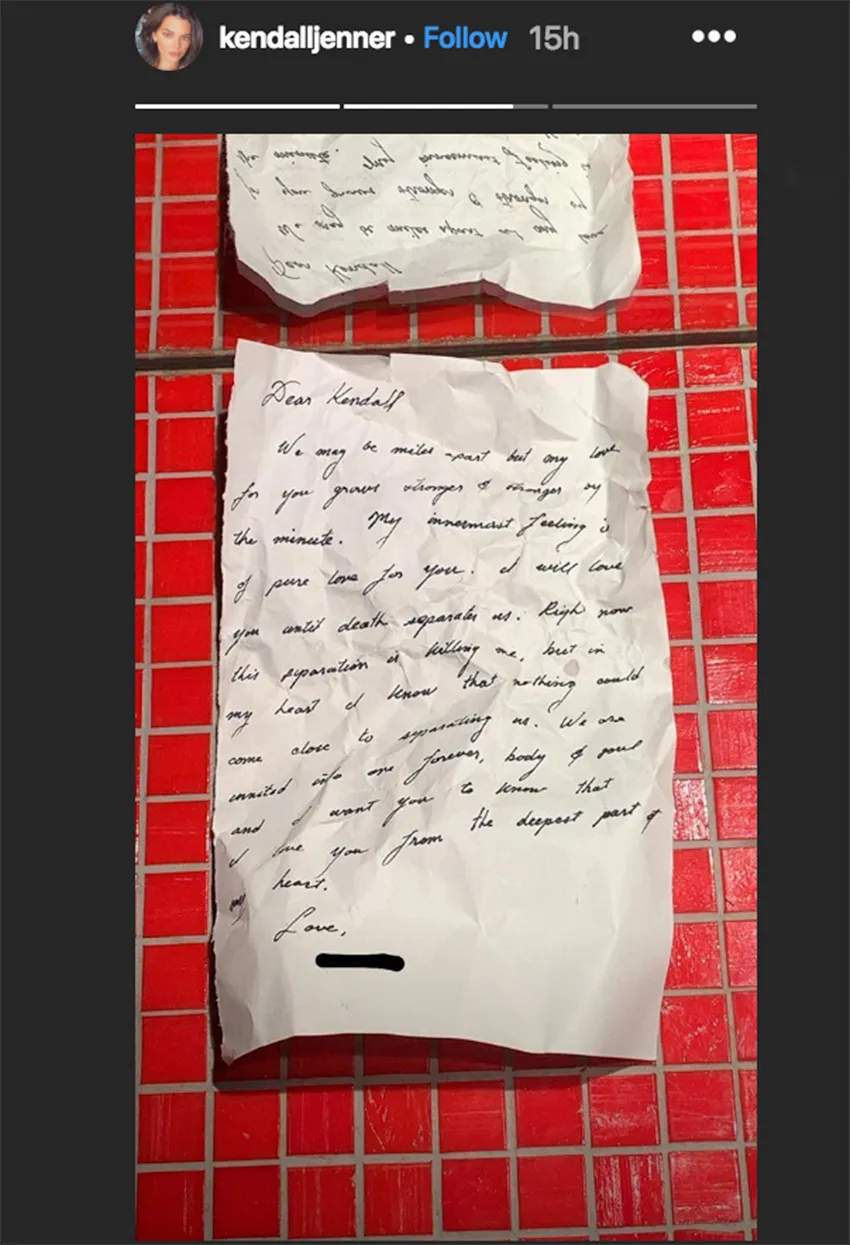 kendalljenner • Follow 15h
Dear Kendall
We may be miles apart but my love
for you grows stronger & stronger by
the minute. My innermost feeling is
of pure love for you. I will love
you until death separates us. Righ now
this separation is killing me, but in
my heart I know that nothing could
come close to separating us. We are
unnited into one forever, body & soul
and I want you to know that
I love you from the deepest part of
my heart.
Love,